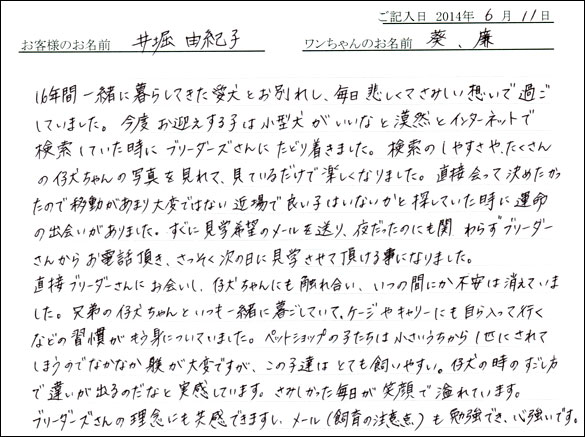 ご記入日 2014年 6月 11日
お客様のお名前 井堀 由紀子 ワンちゃんのお名前 葵、廉
16年間一緒に暮らしてきた愛犬とお別れし、毎日悲しくてさみしい想いで過ご
していました。今度お迎えする子は小型犬がいいなと漠然とインターネットで
検索していた時にブリーダーズさんにたどり着きました。検索のしやすさや、たくさん
の仔犬ちゃんの写真を見れて、見ているだけで楽しくなりました。直接会って決めたかっ
たので移動があまり大変ではない近場で良い子はいないかと探していた時に運命
の出会いがありました。すぐに見学希望のメールを送り、夜だったのにも関わらずブリーダー
さんからお電話頂き、さっそく次の日に見学させて頂ける事になりました。
直接ブリーダーさんにお会いし、仔犬ちゃんにも触れ合い、いつの間にか不安は消えていま
した。兄弟の仔犬ちゃんといつも一緒に暮ごしていて、ケージやキャリーにも自ら入って行く
などの習慣がもう身についていました。ペットショップの子たちは小さいうちから1匹にされて
しまうのでなかなか躾が大変ですが、この子達はとても飼いやすい。仔犬の時のすごし方
で違いが出るのだなと実感しています。さみしかった毎日が笑顔で溢れています。
ブリーダーズさんの理念にも共感できますし、メール(飼育の注意点)も勉強でき、心強いです。